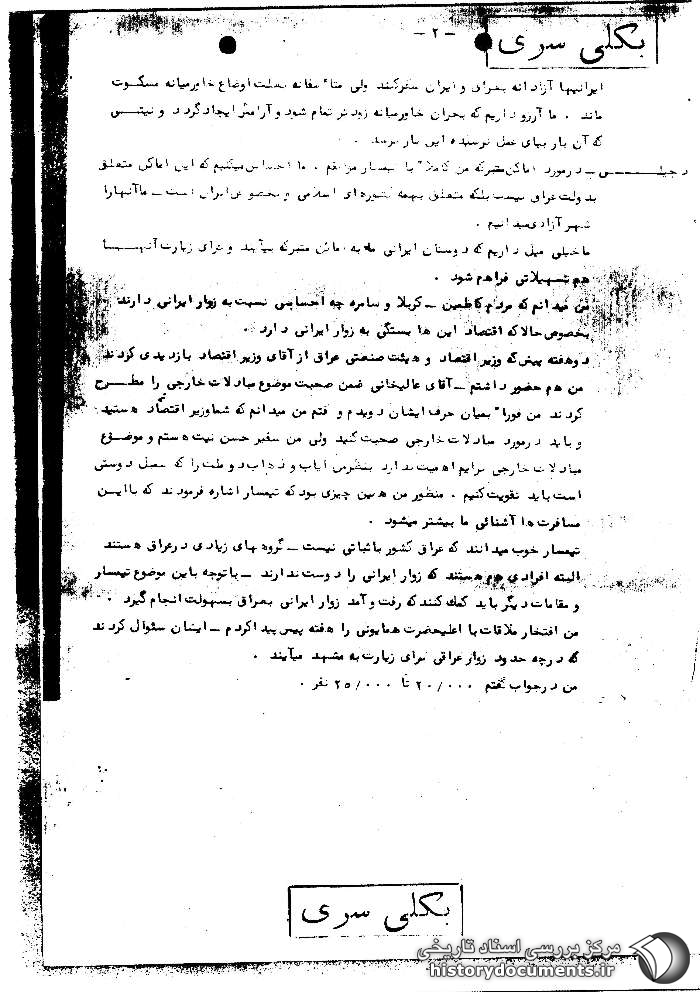 بکلی سری
- ۲ -
ایرانیها آزادانه بعراق و ایران سفر کنند ولی متأسفانه بعلت اوضاع خاورمیانه مسکوت
ماند . ما آرزو داریم که بحران خاورمیانه زودتر تمام شود و آرامش ایجاد گردد و نیتی
که آن بار بجای عمل نرسیده این بار برسد .
در مورد اماکن متبرکه من کاملا" با تیمسار موافقم . ما احساس میکنیم که این اماکن متعلق
بدولت عراق نیست بلکه متعلق بهمه کشورهای اسلامی و بخصوص ایران است - ما آنها را
شهر آزاد میدانیم .
ما خیلی میل داریم که دوستان ایرانی ما به اماکن متبرکه بیآیند و برای زیارت آنهـــا
هم تسهیلاتی فراهم شود .
من میدانم که مردم کاظمین - کربلا و سامره چه احساسی نسبت به زوار ایرانی دارند
بخصوص حالا که اقتصاد این ها بستگی به زوار ایرانی دارد .
دو هفته پیش که وزیر اقتصاد و هیئت صنعتی عراق از آقای وزیر اقتصاد بازدیدی کردند
من هم حضور داشتم - آقای عالیخانی ضمن صحبت موضوع مبادلات خارجی را مطـــرح
کردند من فورا" بمیان حرف ایشان دویدم و گفتم من میدانم که شما وزیر اقتصاد هستید
و باید در مورد مبادلات خارجی صحبت کنید ولی من سفیر حسن نیت هستم و موضـوع
مبادلات خارجی برایم اهمیت ندارد بنظر من ایاب و ذهاب دو ملت را که عمل دوستی
است باید تقویت کنیم . منظور من همین چیزی بود که تیمسار اشاره فرمودند که با ایـن
مسافرت ها آشنائی ما بیشتر میشود .
تیمسار خوب میدانند که عراق کشور با ثباتی نیست - گروه های زیادی در عراق هستند
البته افرادی هم هستند که زوار ایرانی را دوست ندارند - با توجه باین موضوع تیمسار
و مقامات دیگر باید کمک کنند که رفت و آمد زوار ایرانی بعراق بسهولت انجام گیرد .
من افتخار ملاقات با اعلیحضرت همایونی را هفته پیش پیدا کردم - ایشان سئوال کردند
که در چه حدود زوار عراقی برای زیارت به مشهد میآیند .
من در جواب گفتم ۲۰/۰۰۰ تا ۲۵/۰۰۰ نفر .
بکلی سری
مرکز بررسی اسناد تاریخی
historydocuments.ir